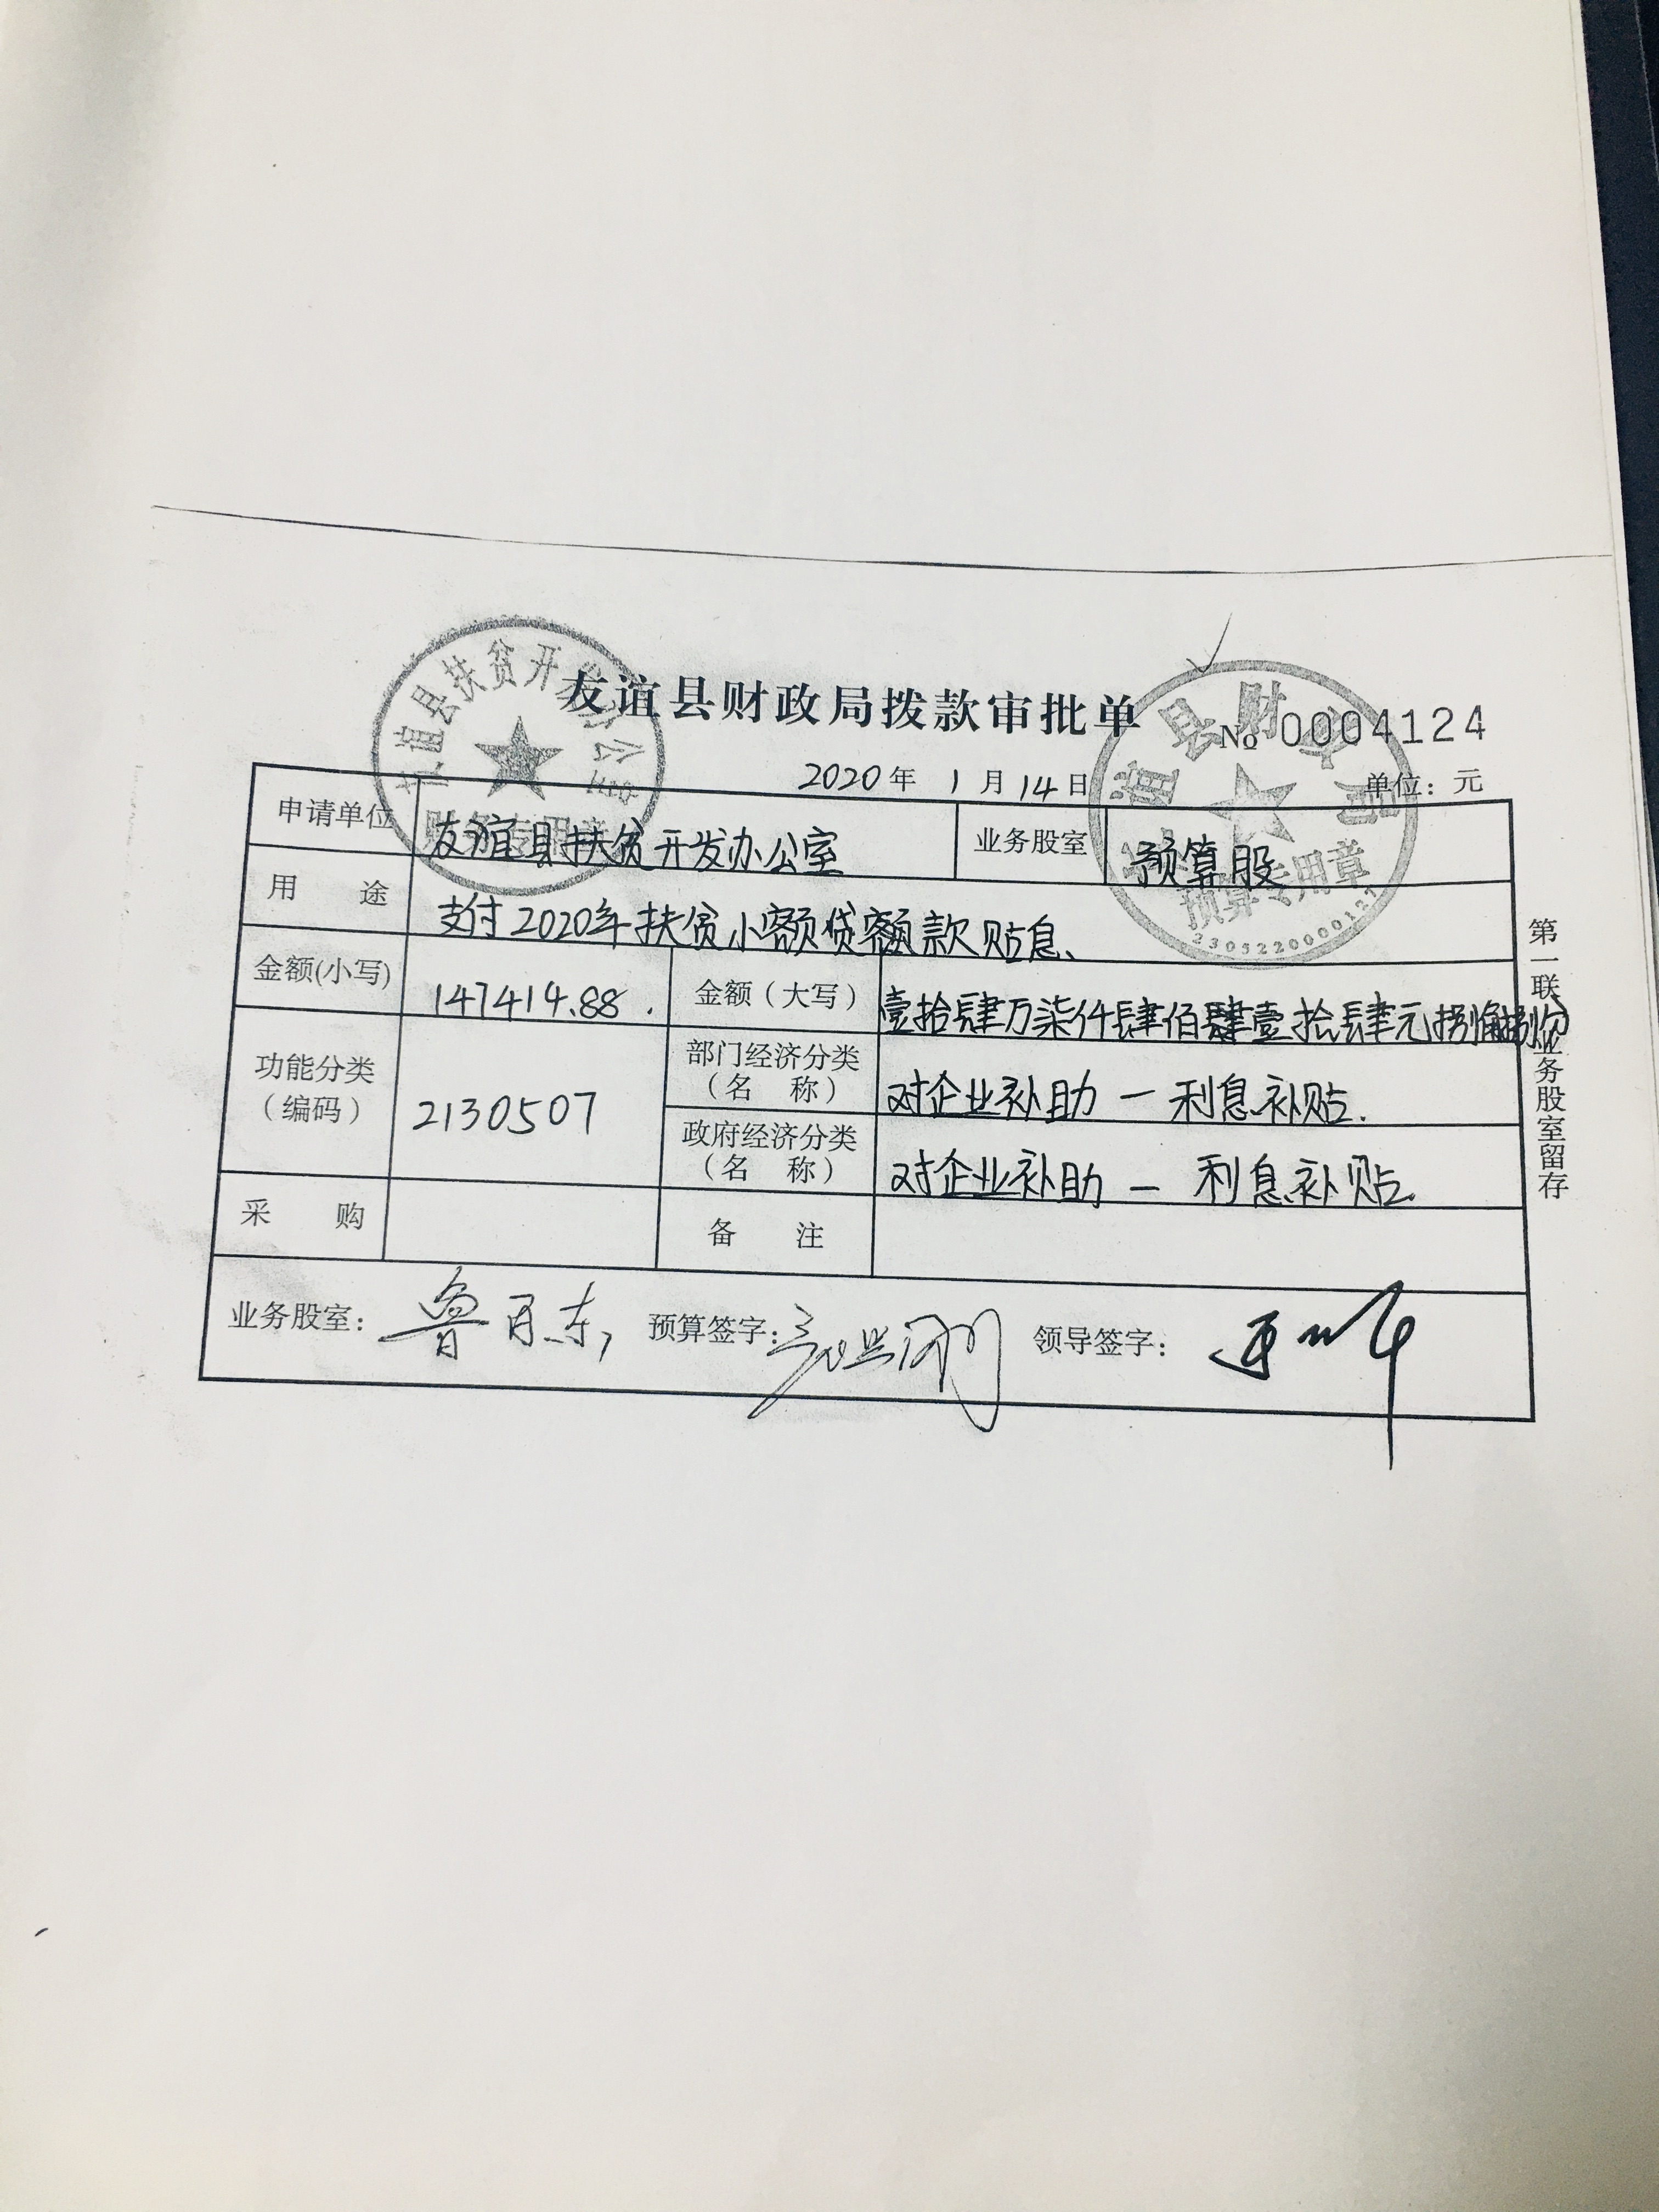 友谊县财政局拨款审批单
№ 0004124
2020年 1月14日
单位：元
申请单位 友谊县扶贫开发办公室 业务股室 预算股
用 途 支付2020年扶贫小额贷额款贴息、
金额(小写) 147414.88. 金额（大写） 壹拾肆万柒仟肆佰肆壹拾肆元捌角捌分
功能分类（编码） 2130507 部门经济分类（名 称） 对企业补助 — 利息补贴.
政府经济分类（名 称） 对企业补助 — 利息补贴.
采 购 备 注
业务股室： 预算签字： 领导签字：
第一联 业务股室留存
友谊县扶贫开发办公室
财务专用章
友谊县财政局
预算专用章